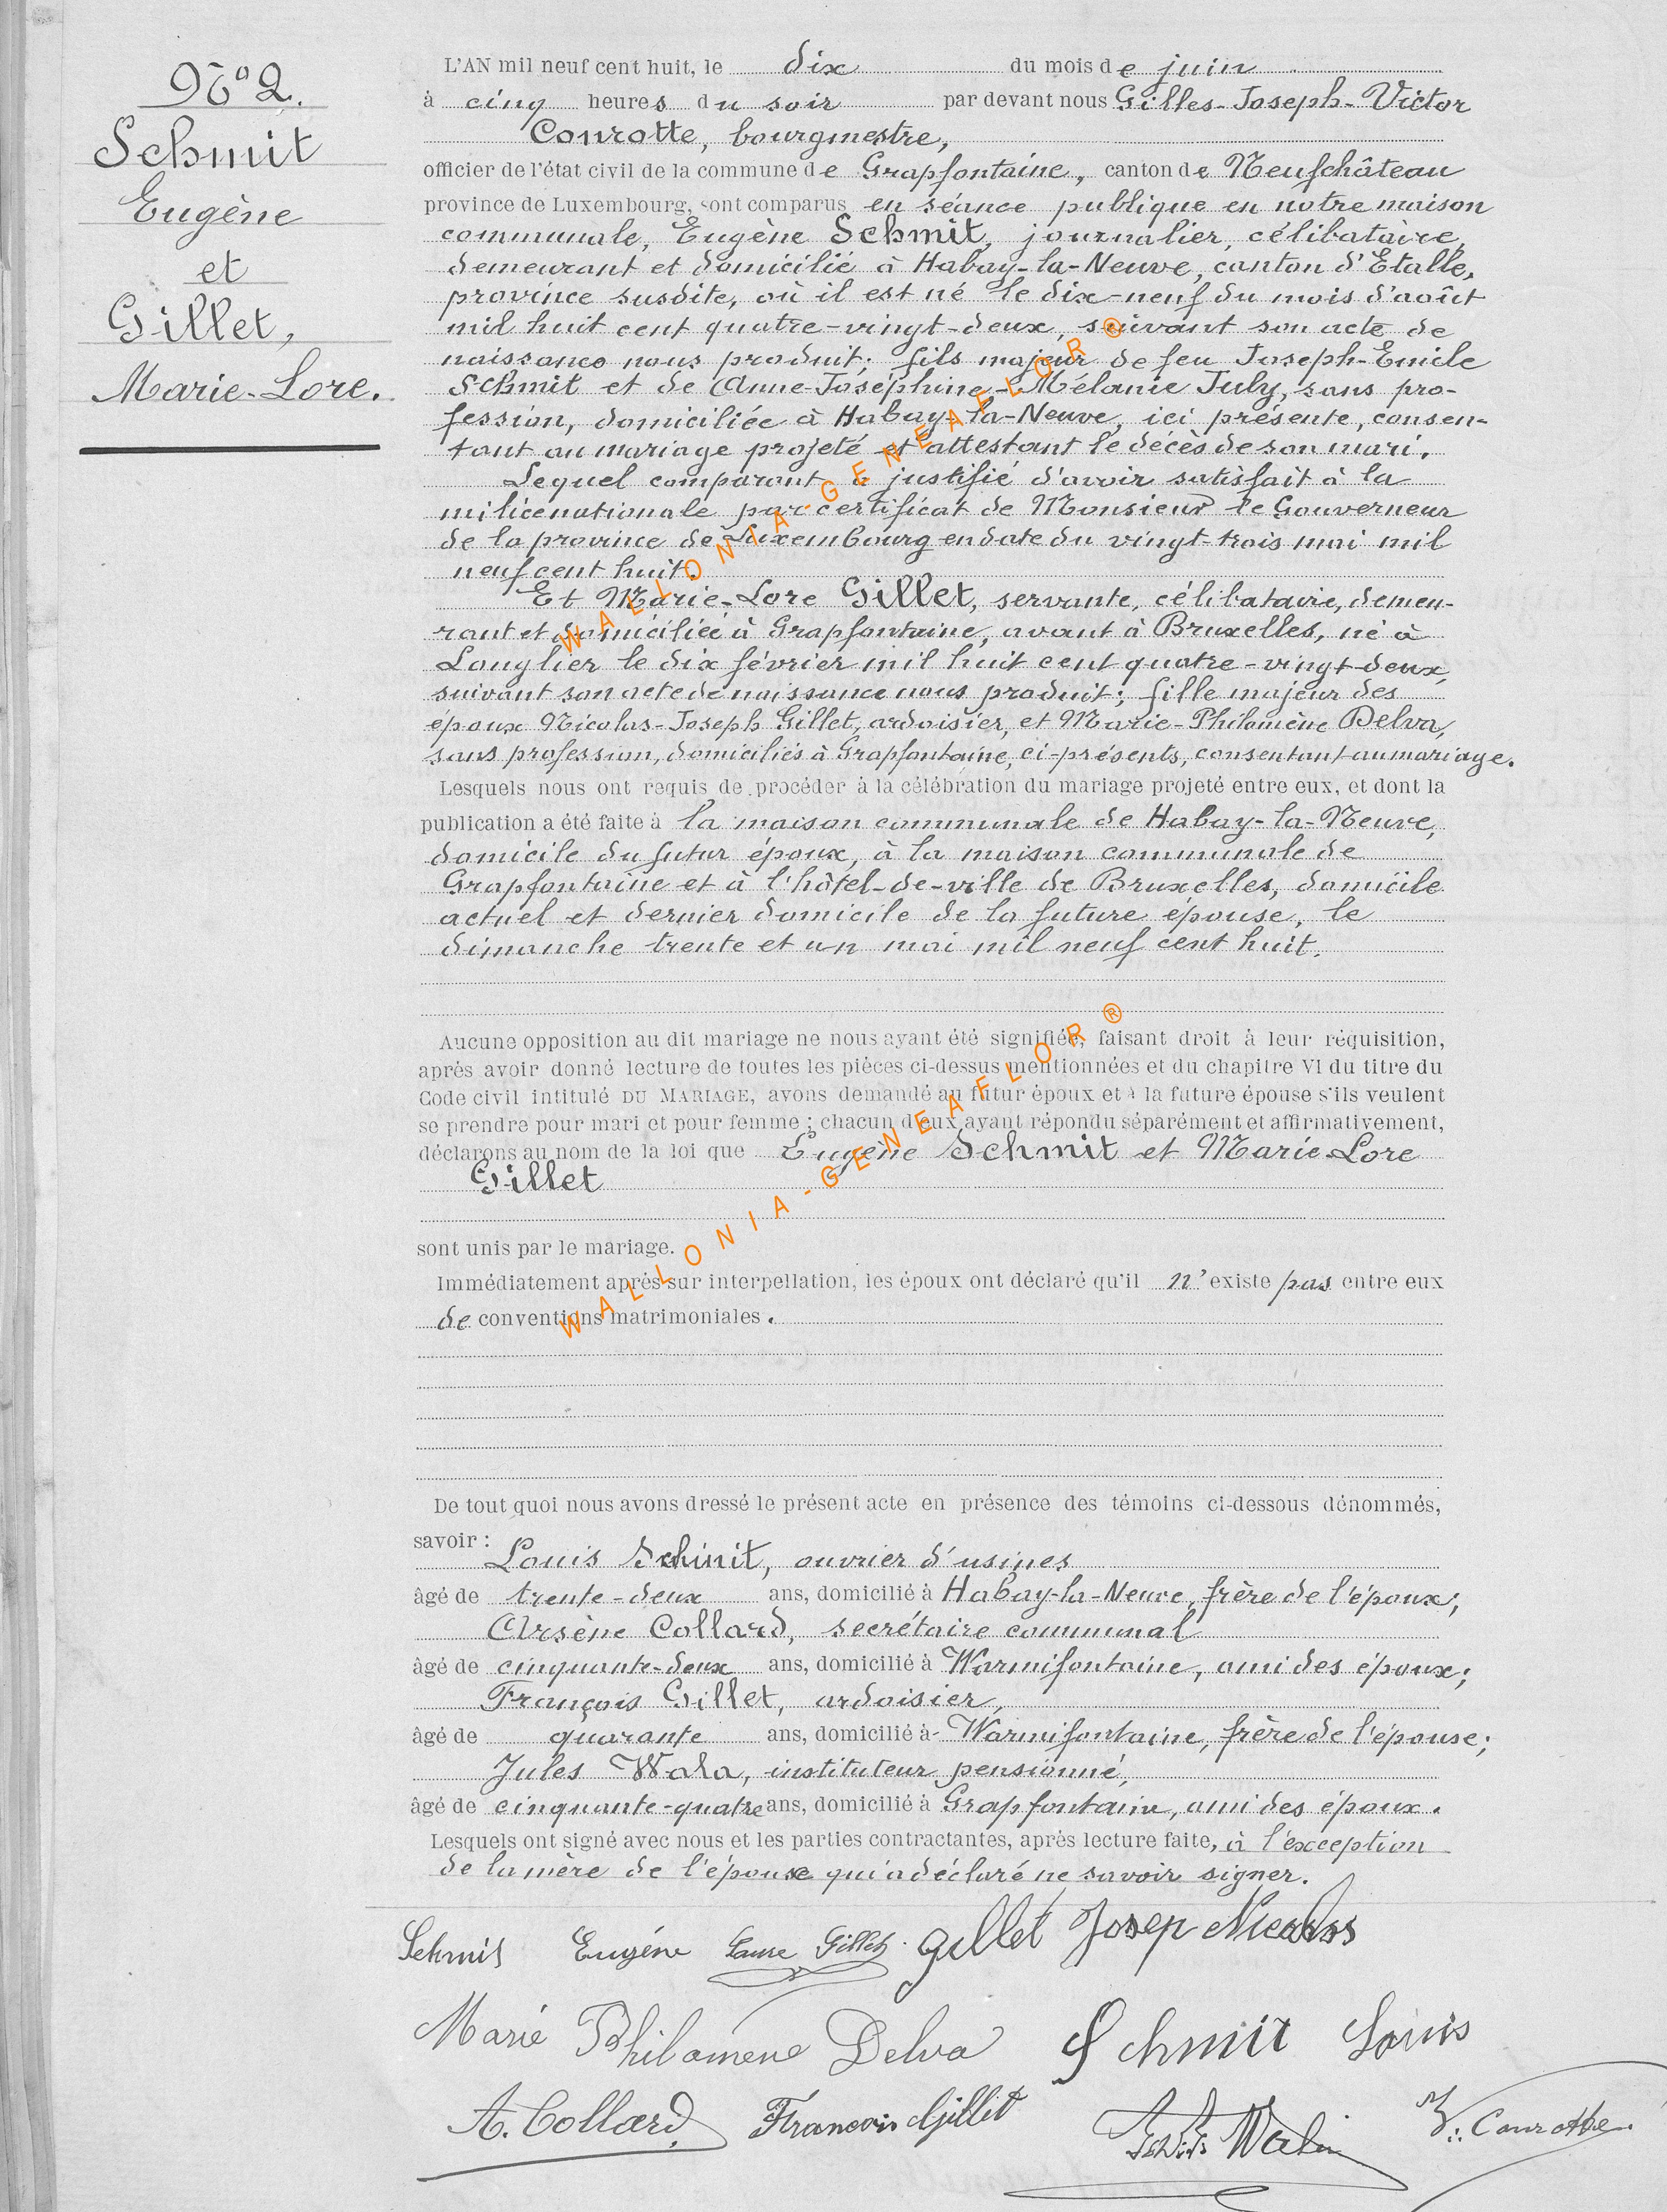 N° 2.
Schmit
Eugène
et
Gillet,
Marie-Lore.
L'AN mil neuf cent huit, le dix du mois de juin
à cinq heures du soir par devant nous Gilles-Joseph-Victor
Conrotte, bourgmestre,
officier de l'état civil de la commune de Grapfontaine, canton de Neufchâteau
province de Luxembourg, sont comparus en séance publique en notre maison
communale, Eugène Schmit, journalier, célibataire,
demeurant et domicilié à Habay-la-Neuve, canton d'Etalle,
province susdite, où il est né le dix-neuf du mois d'août
mil huit cent quatre-vingt-deux, suivant son acte de
naissance nous produit; fils majeur de feu Joseph-Emile
Schmit et de Anne-Joséphine-Mélanie July, sans pro-
fession, domiciliée à Habay-la-Neuve, ici présente, consen-
tant au mariage projeté et attestant le décès de son mari.
Lequel comparant a justifié d'avoir satisfait à la
milice nationale par certificat de Monsieur le Gouverneur
de la province de Luxembourg en date du vingt-trois mai mil
neuf cent huit.
Et Marie-Lore Gillet, servante, célibataire, demeu-
rant et domiciliée à Grapfontaine, avant à Bruxelles, né à
Longlier le dix février mil huit cent quatre-vingt-deux,
suivant son acte de naissance nous produit; fille majeur des
époux Nicolas-Joseph Gillet, ardoisier, et Marie-Philomène Delva,
sans profession, domiciliés à Grapfontaine, ci-présents, consentant au mariage.
Lesquels nous ont requis de procéder à la célébration du mariage projeté entre eux, et dont la
publication a été faite à la maison communale de Habay-la-Neuve,
domicile du futur époux, à la maison communale de
Grapfontaine et à l'hôtel-de-ville de Bruxelles, domicile
actuel et dernier domicile de la future épouse, le
dimanche trente et un mai mil neuf cent huit.
Aucune opposition au dit mariage ne nous ayant été signifiée, faisant droit à leur réquisition,
après avoir donné lecture de toutes les pièces ci-dessus mentionnées et du chapitre VI du titre du
Code civil intitulé DU MARIAGE, avons demandé au futur époux et à la future épouse s'ils veulent
se prendre pour mari et pour femme ; chacun d'eux ayant répondu séparément et affirmativement,
déclarons au nom de la loi que Eugène Schmit et Marie-Lore
Gillet
sont unis par le mariage.
Immédiatement après sur interpellation, les époux ont déclaré qu'il n'existe pas entre eux
de conventions matrimoniales.
De tout quoi nous avons dressé le présent acte en présence des témoins ci-dessous dénommés,
savoir :
Louis Schmit, ouvrier d'usines
âgé de trente-deux ans, domicilié à Habay-la-Neuve, frère de l'époux;
Arsène Collard, secrétaire communal
âgé de cinquante-deux ans, domicilié à Warmifontaine, ami des époux;
François Gillet, ardoisier,
âgé de quarante ans, domicilié à Warmifontaine, frère de l'épouse;
Jules Wala, instituteur pensionné,
âgé de cinquante-quatre ans, domicilié à Grapfontaine, ami des époux.
Lesquels ont signé avec nous et les parties contractantes, après lecture faite, à l'exception
de la mère de l'épouse qui a déclaré ne savoir signer.
Schmit Eugène Laure Gillet Gillet Josep Nicolas
Marie Philomène Delva Schmit Louis
A. Collard François Gillet V. Conrotte
WALLONIA-GENEAFLOR®
WALLONIA-GENEAFLOR®